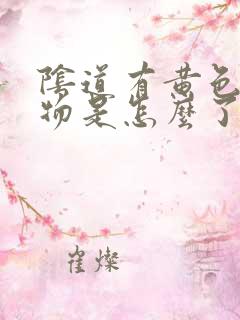 陰道有黄色
物是怎麼了
崔燦